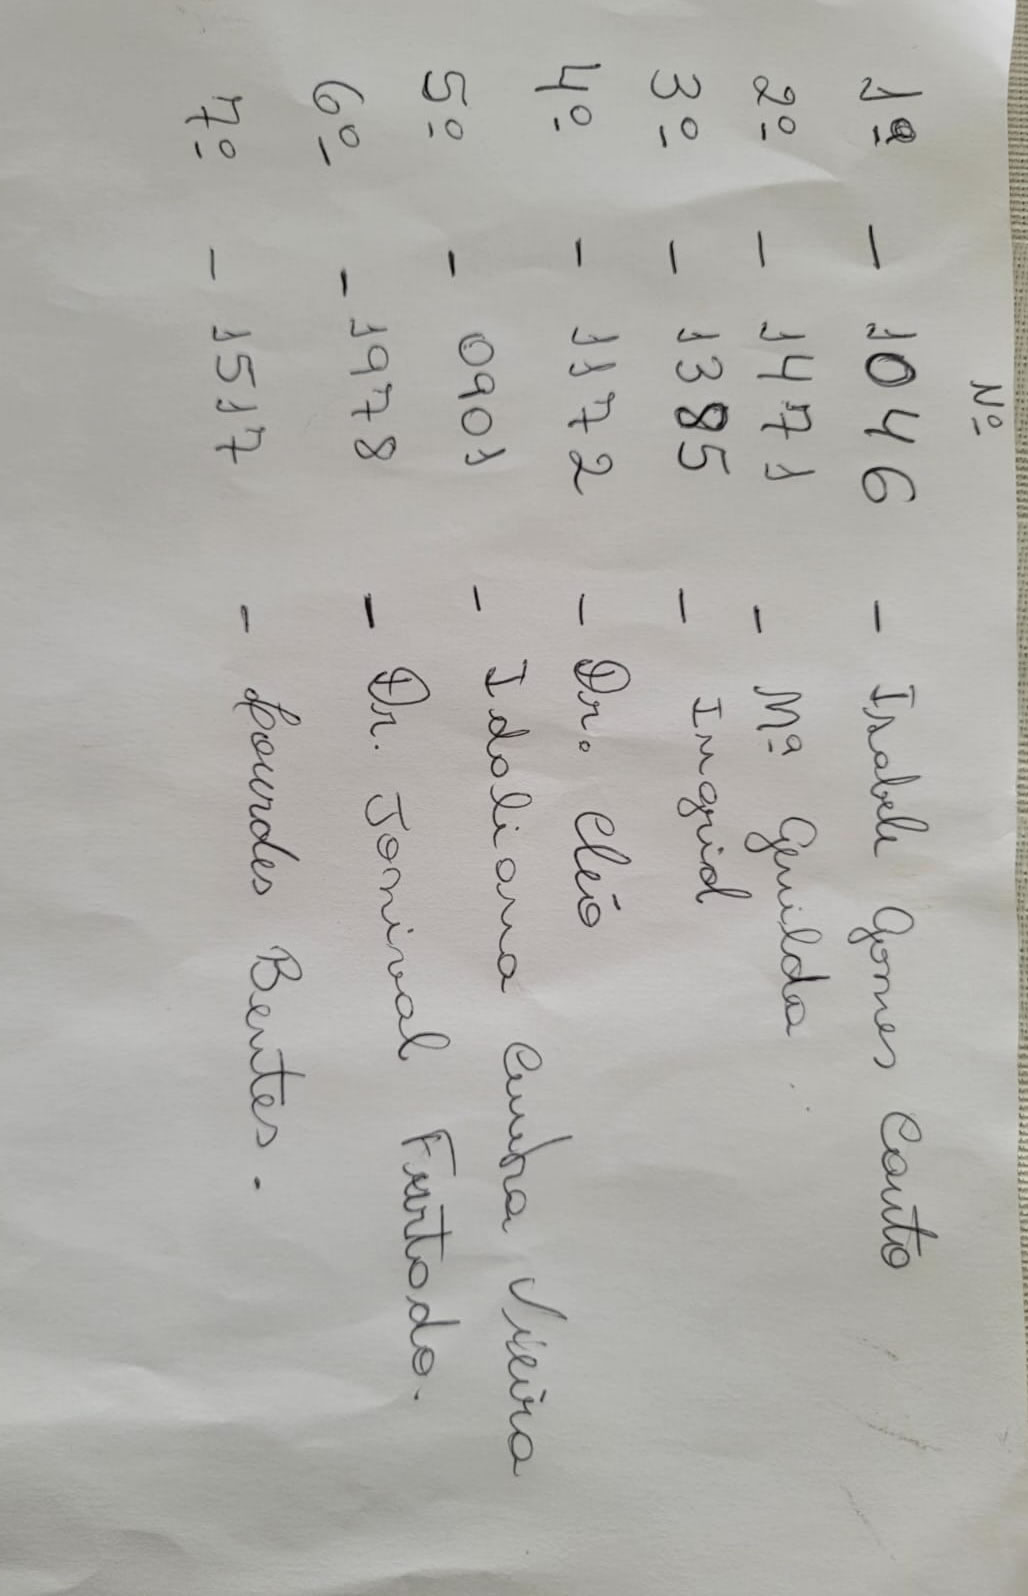 Nº
1º - 1046 - Isabele Gomes Couto
2º - 1471 - Mª Genilda
3º - 1385 - Ingrid
4º - 1172 - Dr. Cléo
5º - 0901 - Idoliana Cunha Vieira
6º - 1978 - Dr. Jonival Furtado.
7º - 1517 - Lourdes Bentes.